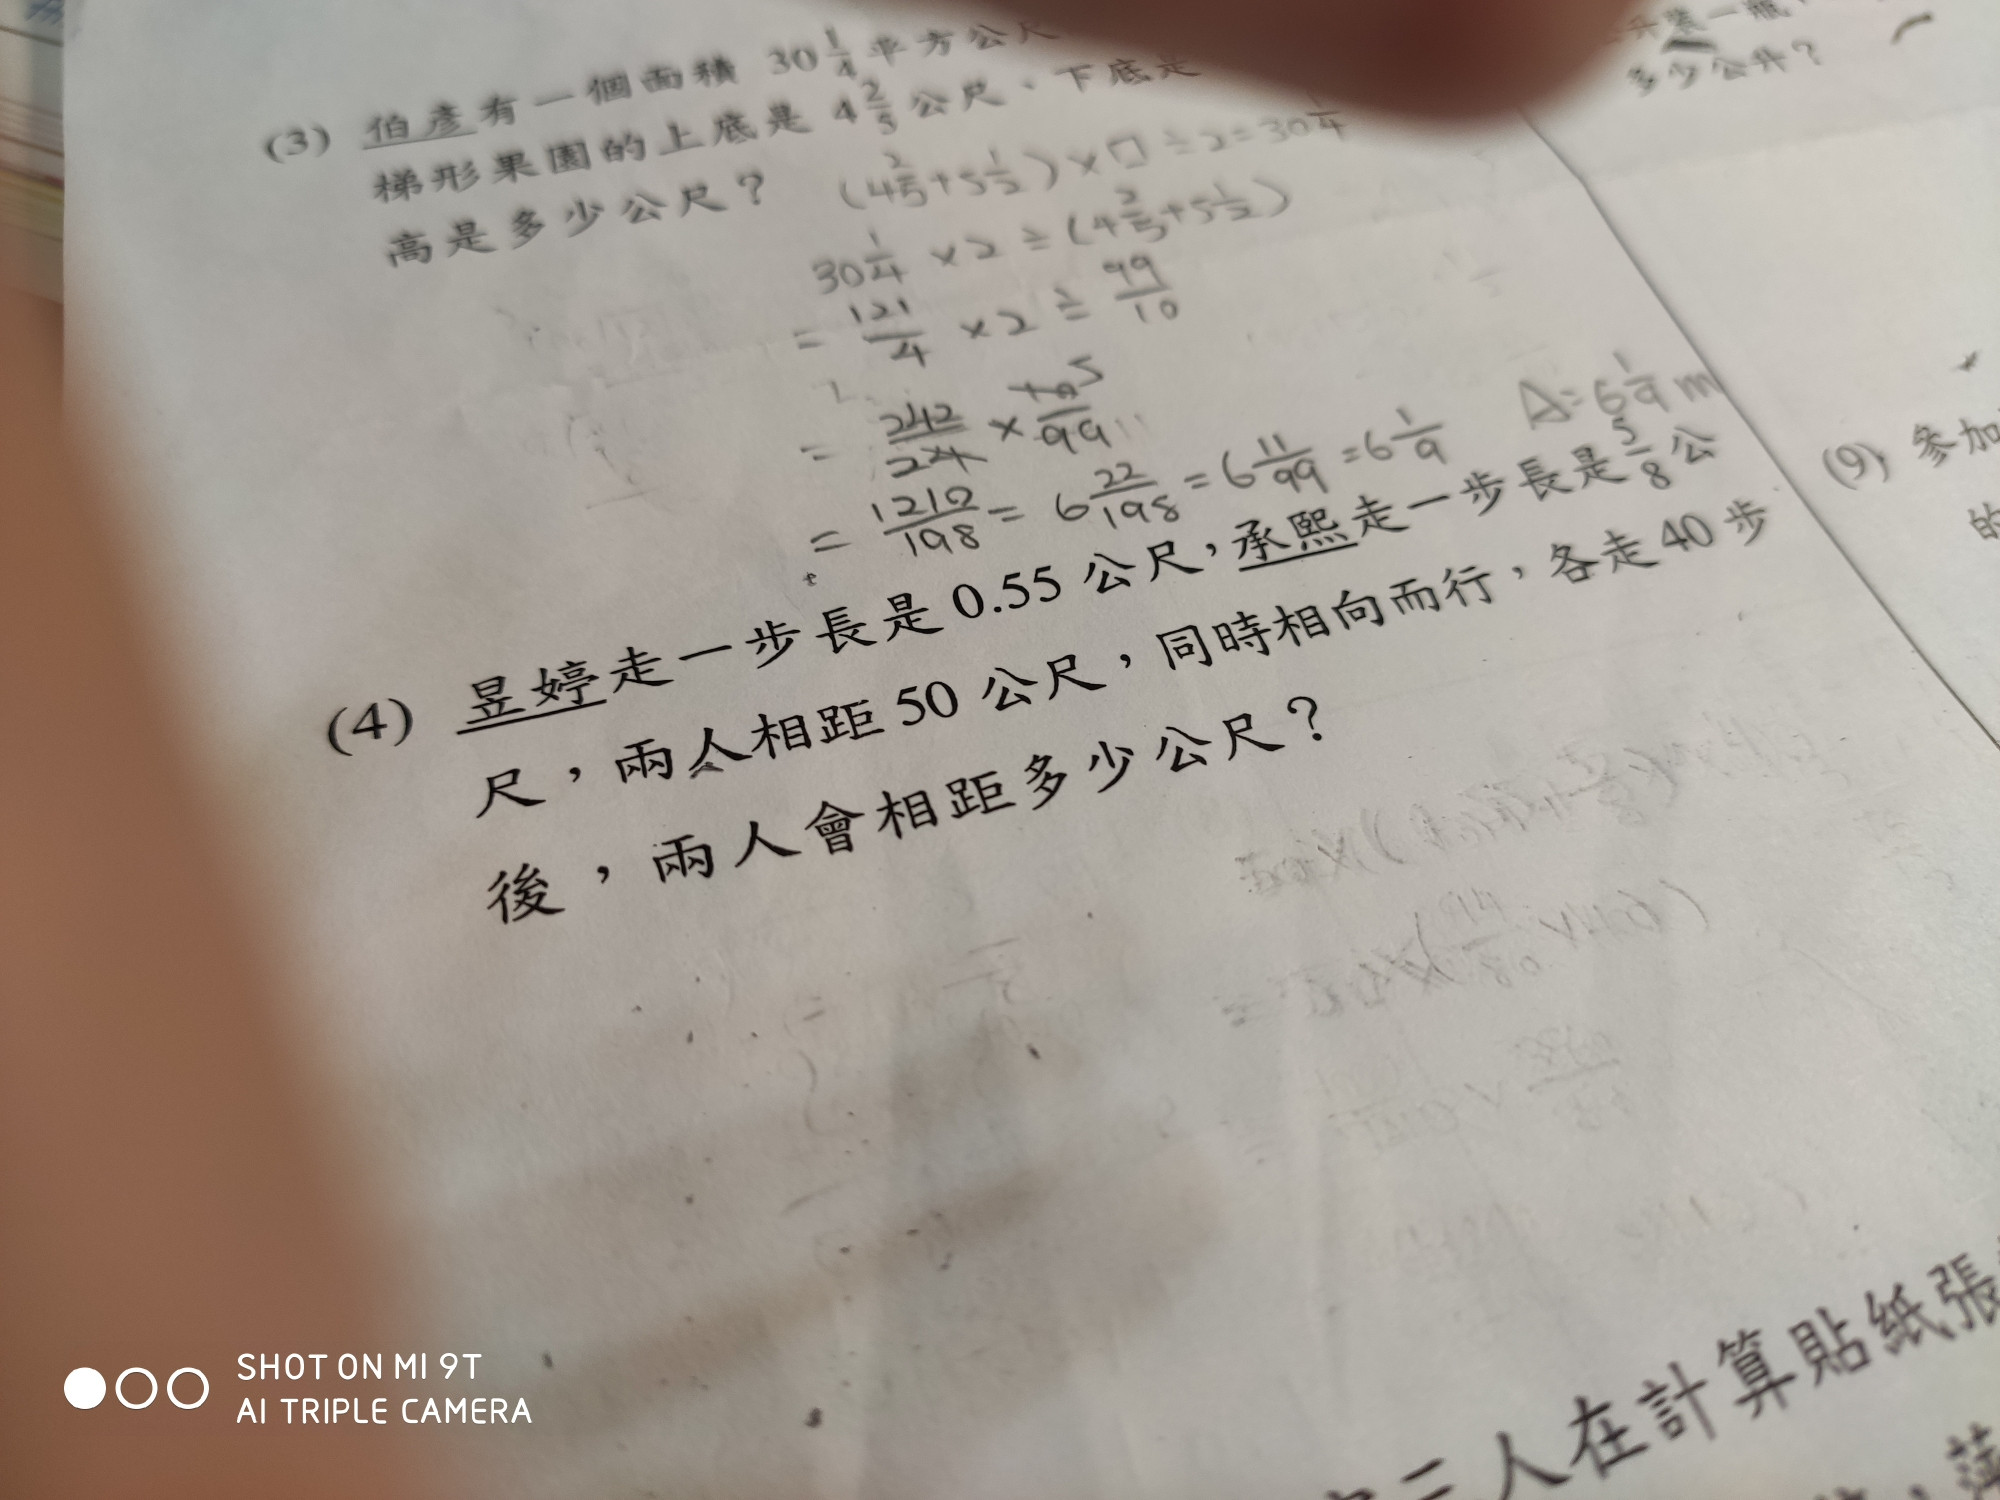 (3) 伯彥有一個面積 30 1/4 平方公尺
梯形果園的上底是 4 2/5 公尺、下底是
高是多少公尺？
(4 2/5 + 5 1/2) × □ ÷ 2 = 30 1/4
30 1/4 × 2 ÷ (4 2/5 + 5 1/2)
= 121/4 × 2 ÷ 99/10
= 1210/198 = 6 22/198 = 6 11/99 = 6 1/9
A = 6 1/9 m
(4) 昱婷走一步長是 0.55 公尺，承熙走一步長是 5/8 公
尺，兩人相距 50 公尺，同時相向而行，各走 40 步
後，兩人會相距多少公尺？
多少公升？
(9) 參加
的
二人在計算貼紙張
SHOT ON MI 9T
AI TRIPLE CAMERA